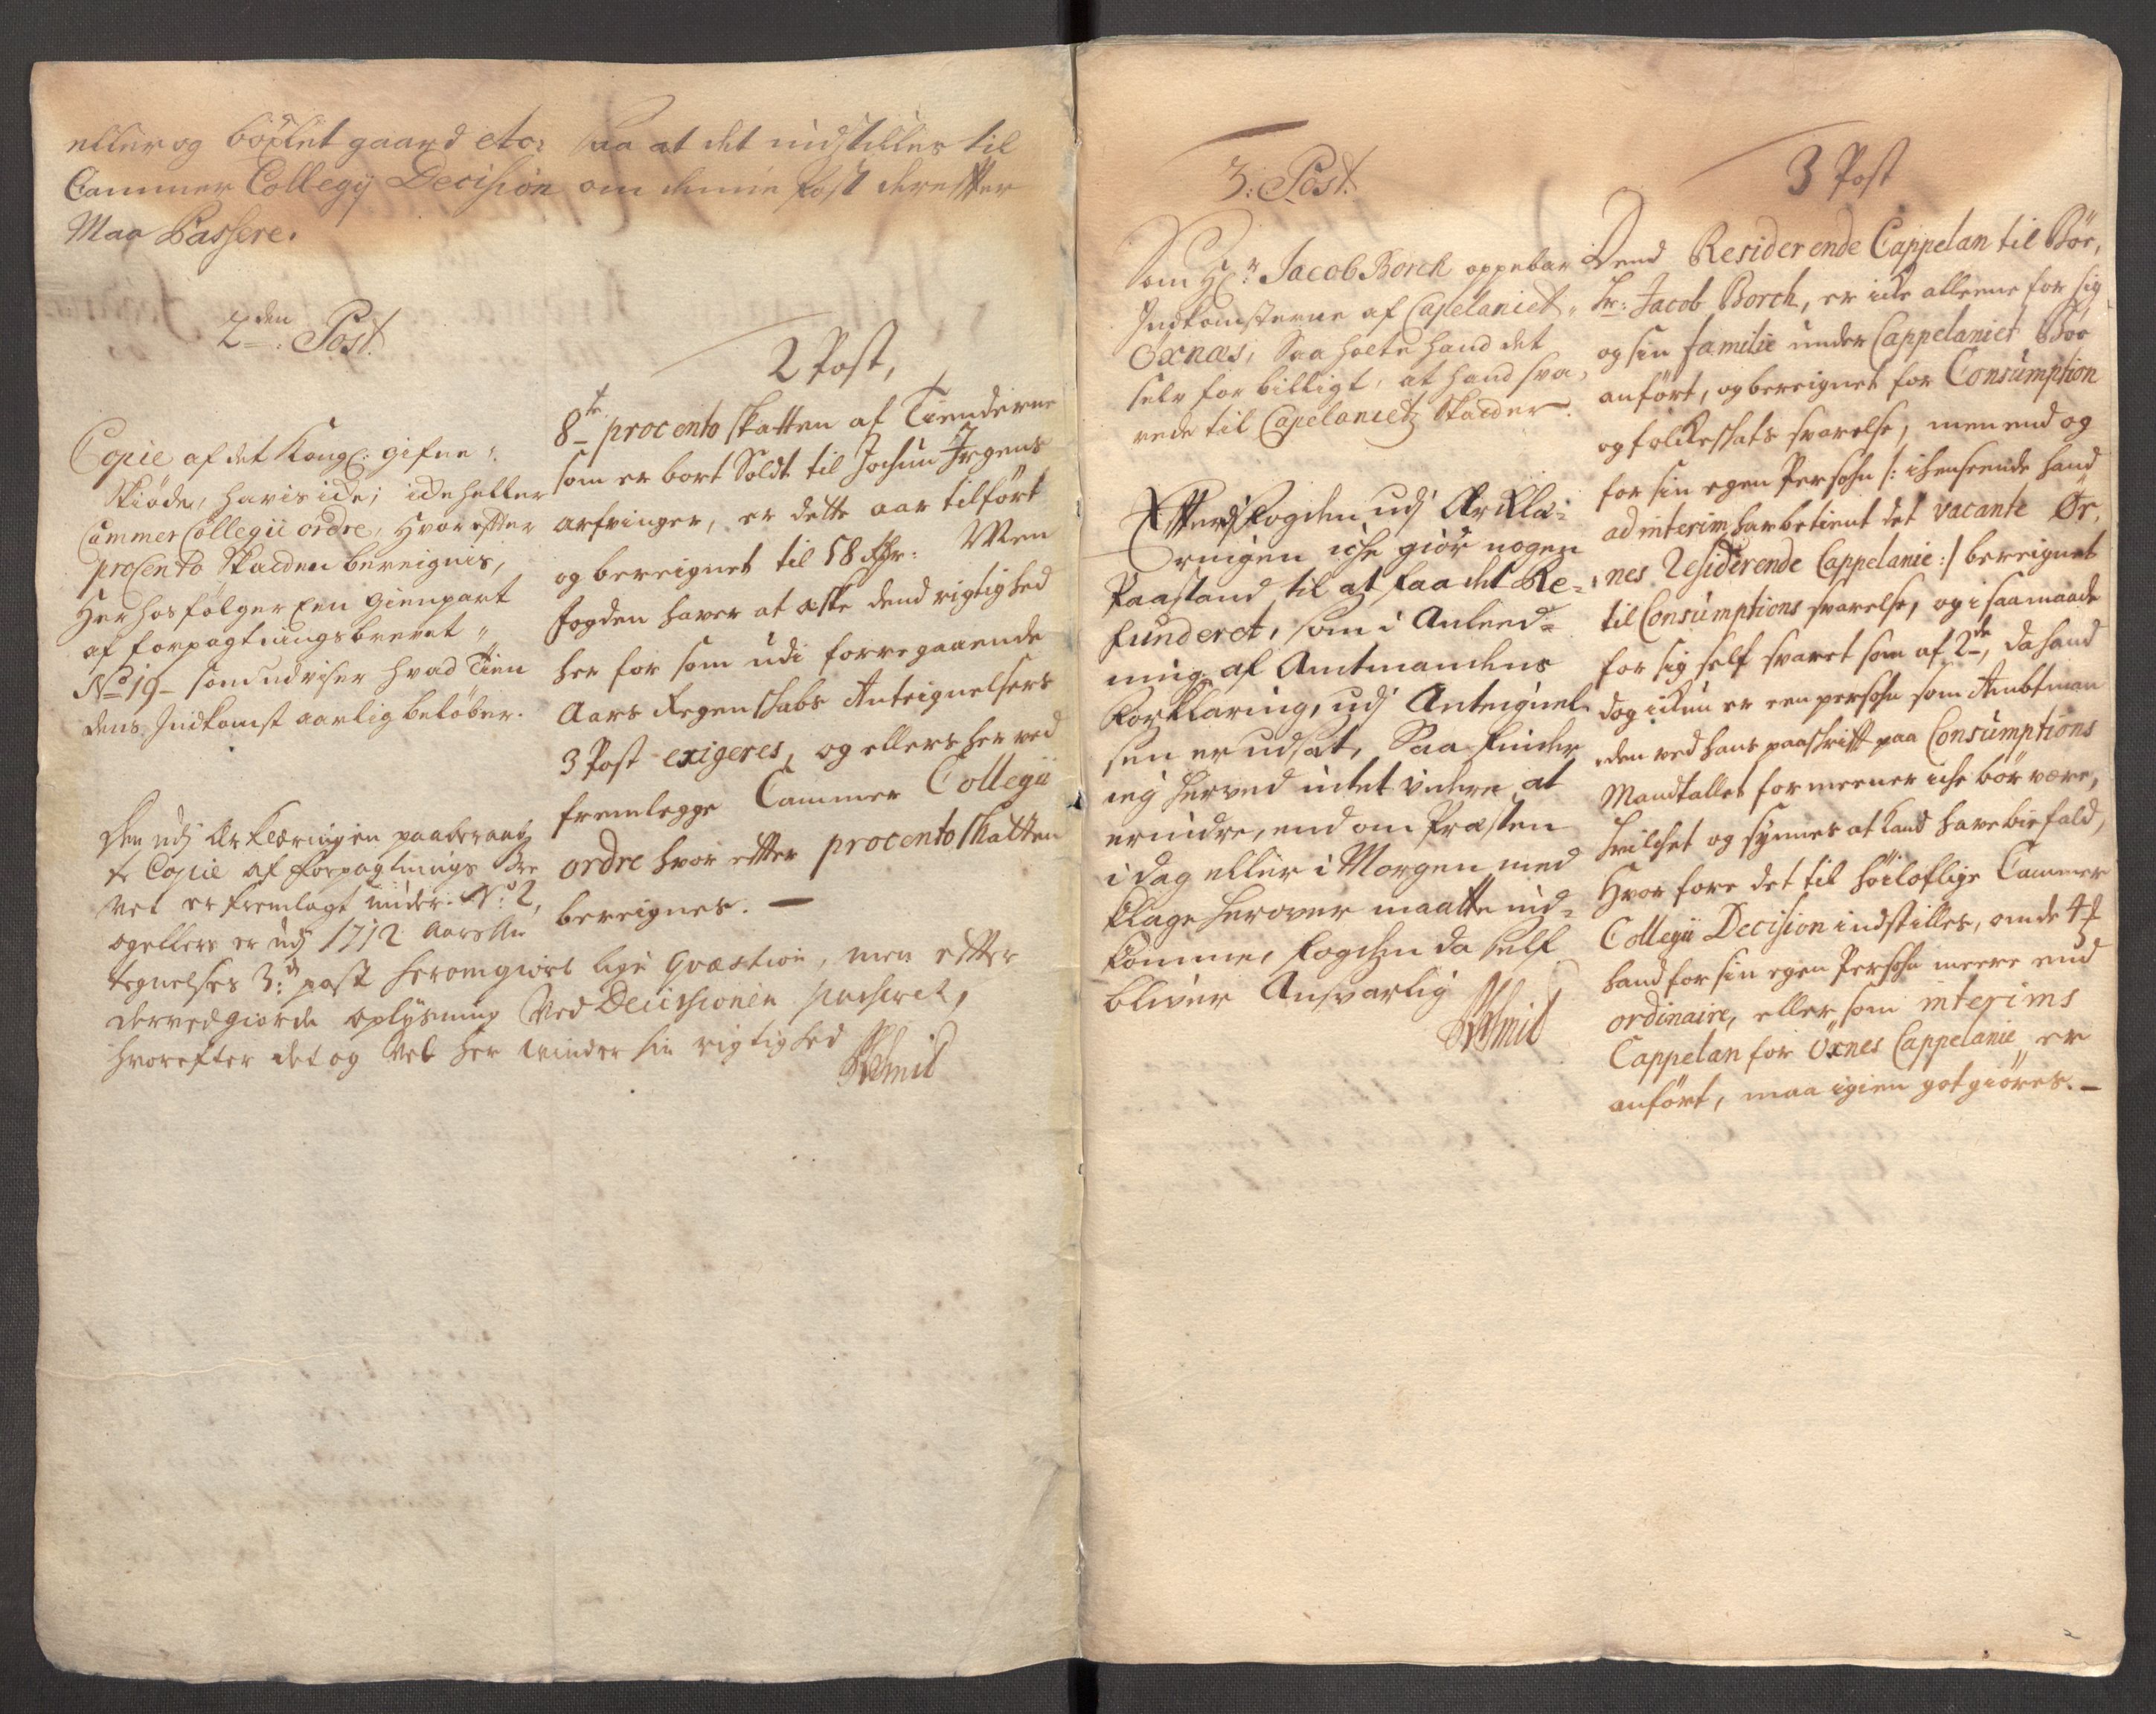 eller og böxlet gaard etc: saa at det indstilles til
Cammer Collegij Decision om denne Post derefter
Maa Passere.
2den: Post.
Copie af det Kongl: gifne
Skiöde, haris icke; icke heller
Cammer Collegii ordre, hvor efter
procento Skatten bereignis,
Her hos fölger Een gienpart
af forpagtnings brevet
No 19 som udviser hvad Tien
dens Indkomst aarlig belöber.
Den udj Erklæringen paaberaab
te Copie af Forpagtnings Bre
vet er fremlagt under No: 2,
og ellers er udj 1712 Aars An
tegnelses 3: post herom giort lige Qvæstion, men efter
derved giorde oplysning ved Decisionen passeret,
hvorefter det og vel her vinder sin rigtighed
2 Post,
8te procento skatten af Tienderne
som er bort Soldt til Jochum Jrgens
arfvinger, er dette aar tilfört
og bereignet til 58 Rdr: Men
fogden haver at æske dend rigtighed
her for som udi forregaaende
Aars Regenskabs Anteignelsers
3 Post exigeres, og ellers her ved
fremlegge Cammer Collegii
ordre hvor efter procento skatten
bereignes. —
3: Post.
Som Hr: Jacob Borch oppebar
Indkomsterne af Capelaniet
Oxnæs, Saa holte hand det
selv for billigt, at hand sva
rede til Capelanietz Skatder.
Efterdj Fogden udj Erklæ-
ringen iche giör nogen
Paastand til at faa det Re-
funderet, som i Anleed-
ning af Amtmandens
Forklaring, udj Anteignel
sen er udsat, Saa finder
ieg herved intet videre at
erindre, end om Præsten
i dag eller i Morgen med
Klage herover maatte ind-
komme, Fogden da self
bliver Ansvarlig
3 Post
Dend Residerende Cappelan til Böe,
Hr: Jacob Borch, er icke alleene for sig
og sin familie under Cappelaniet Böe
anfört, og bereignet for Consumption
og folkeskats svarelse, men end og
for sin egen Persohn /: i henseende hand
ad interim har betient det vacante Ör,
nes Residerende Cappelanie :/ bereignet
til Consumptions svarelse, og i saa maade
for sig self svaret som af 2de, da hand
dog ickun er een persohn som Ambtman
den ved hans paaskrift paa Consumptions
Mandtallet formeener iche bör være,
hvilchet og synnes at kand have biefald,
Hvor fore det til höiloflige Cammer
Collegii Decision indstilles, om de
hand for sin egen Persohn meere end
ordinaire, eller som interims
Cappelan for Öxnes Cappelanie er
anfört, maa igien godgiöres. —